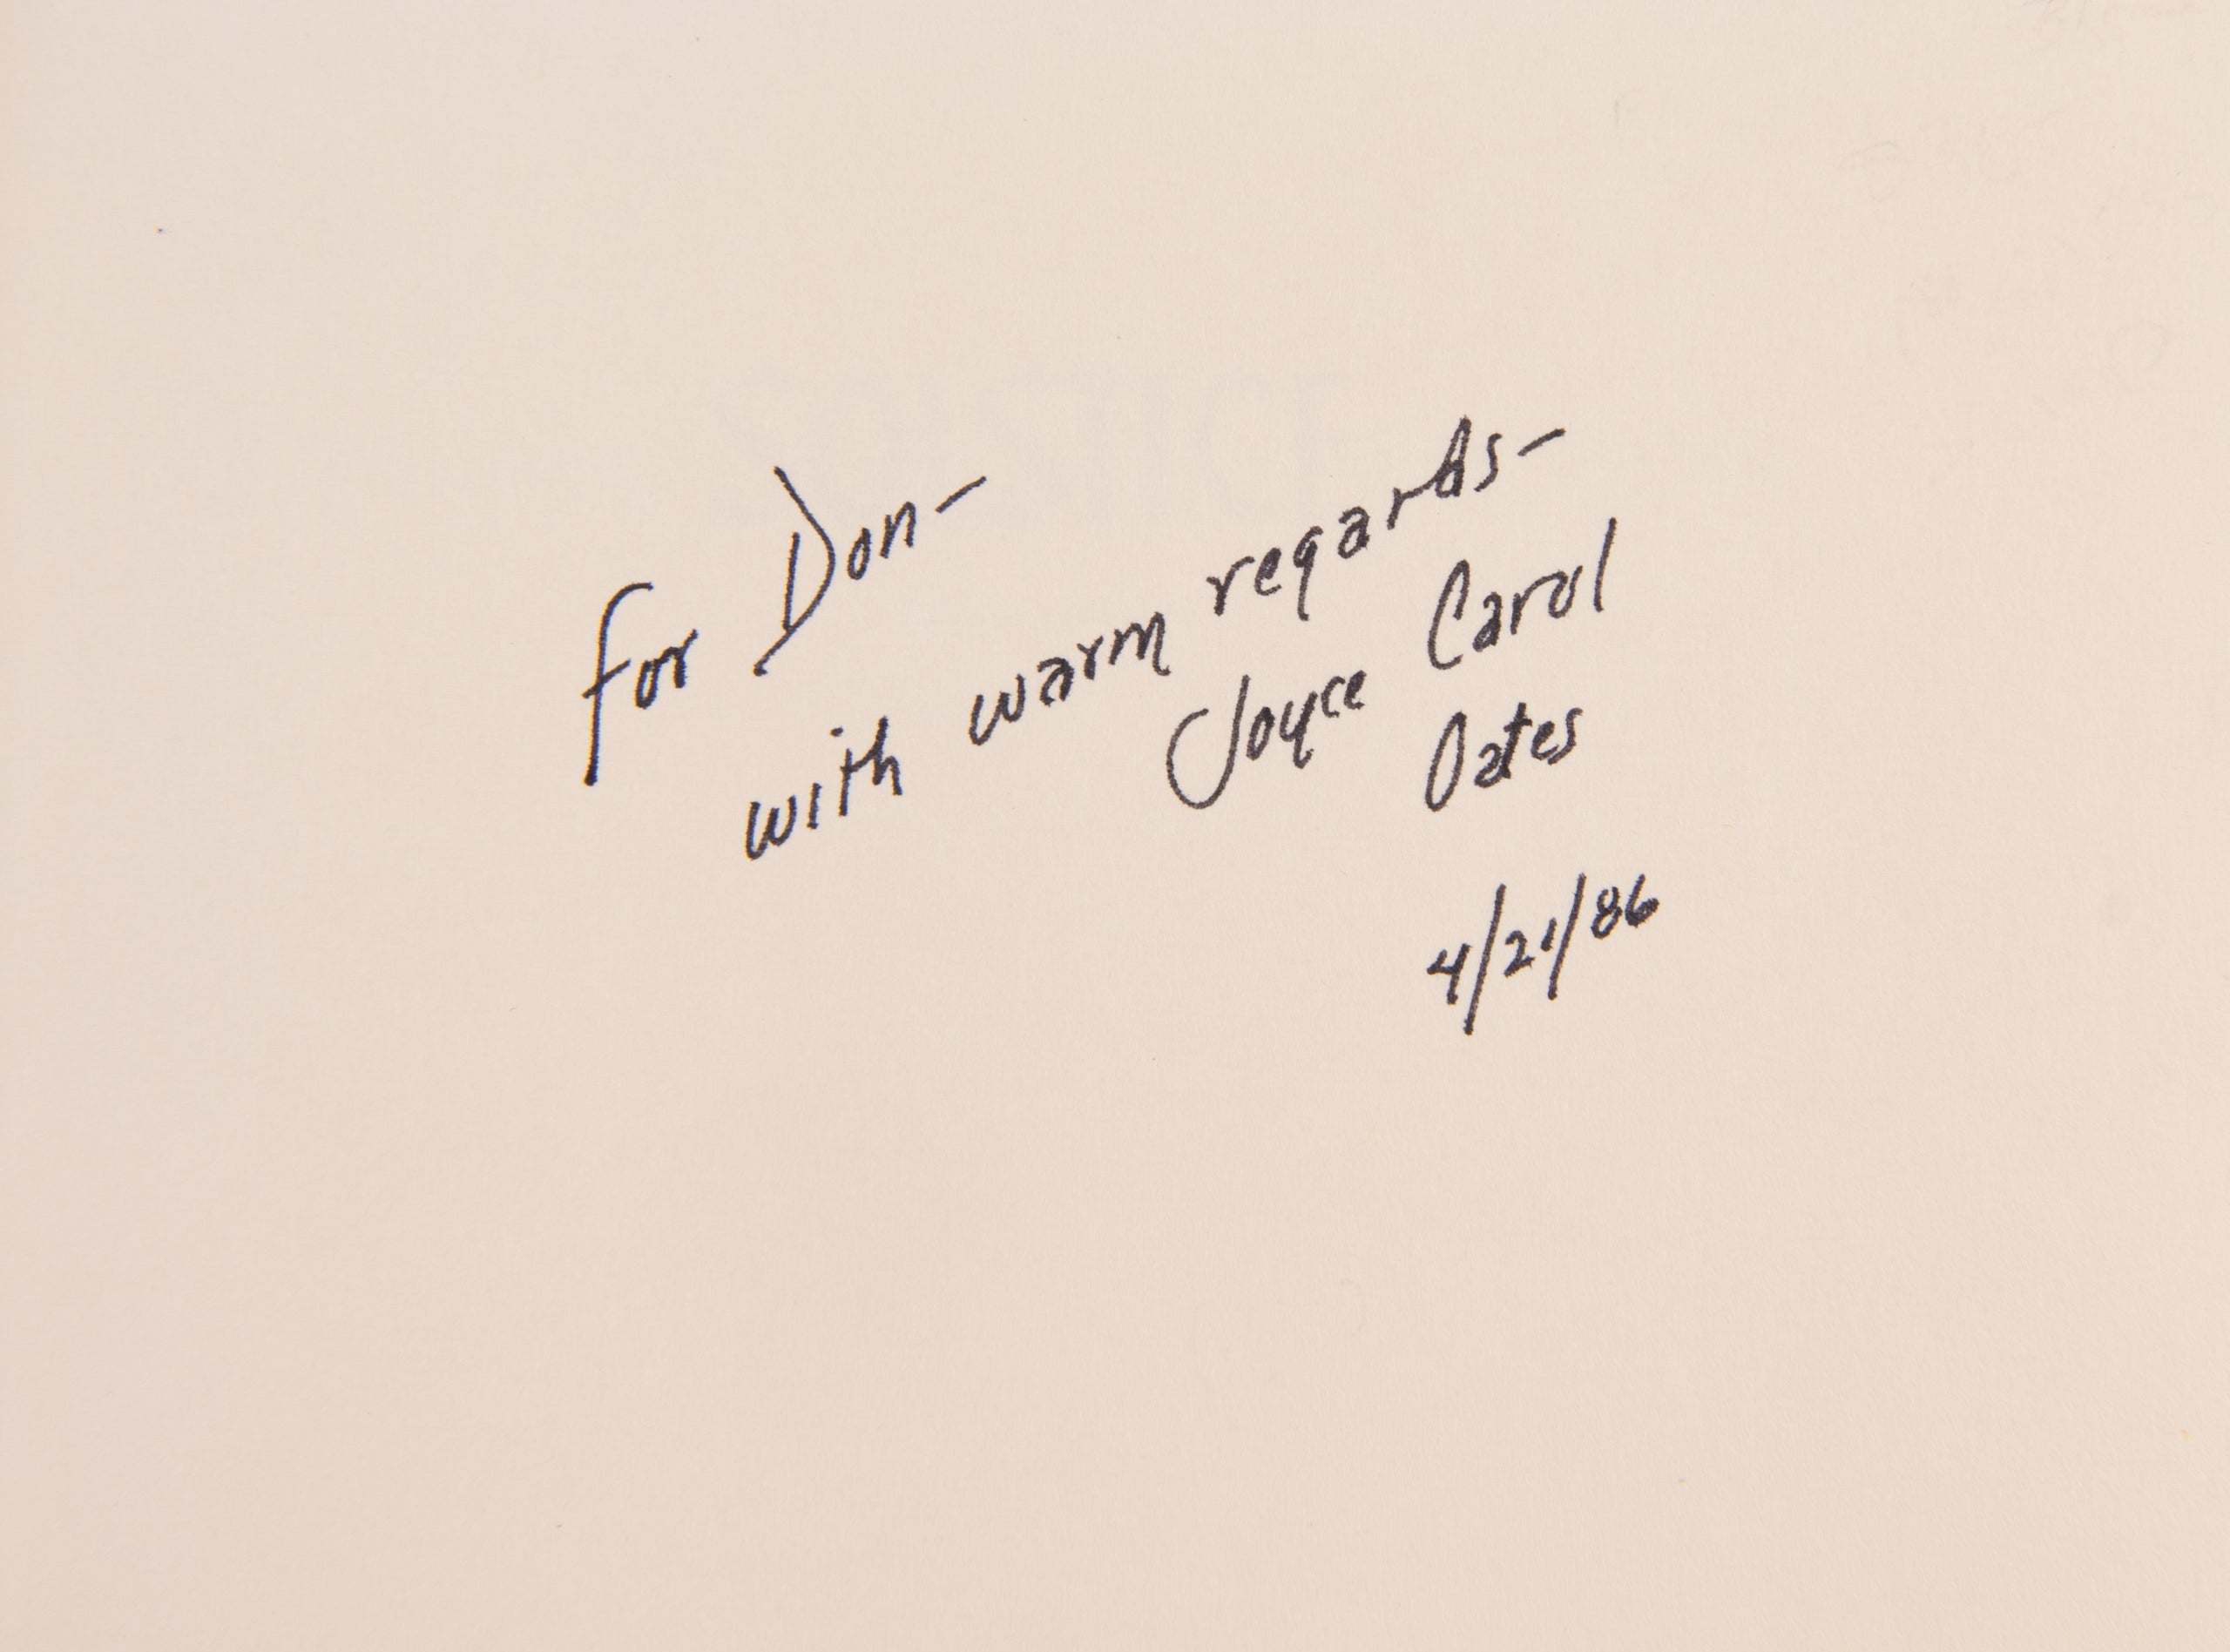 for Don–
with warm regards–
Joyce Carol
Oates
4/21/86